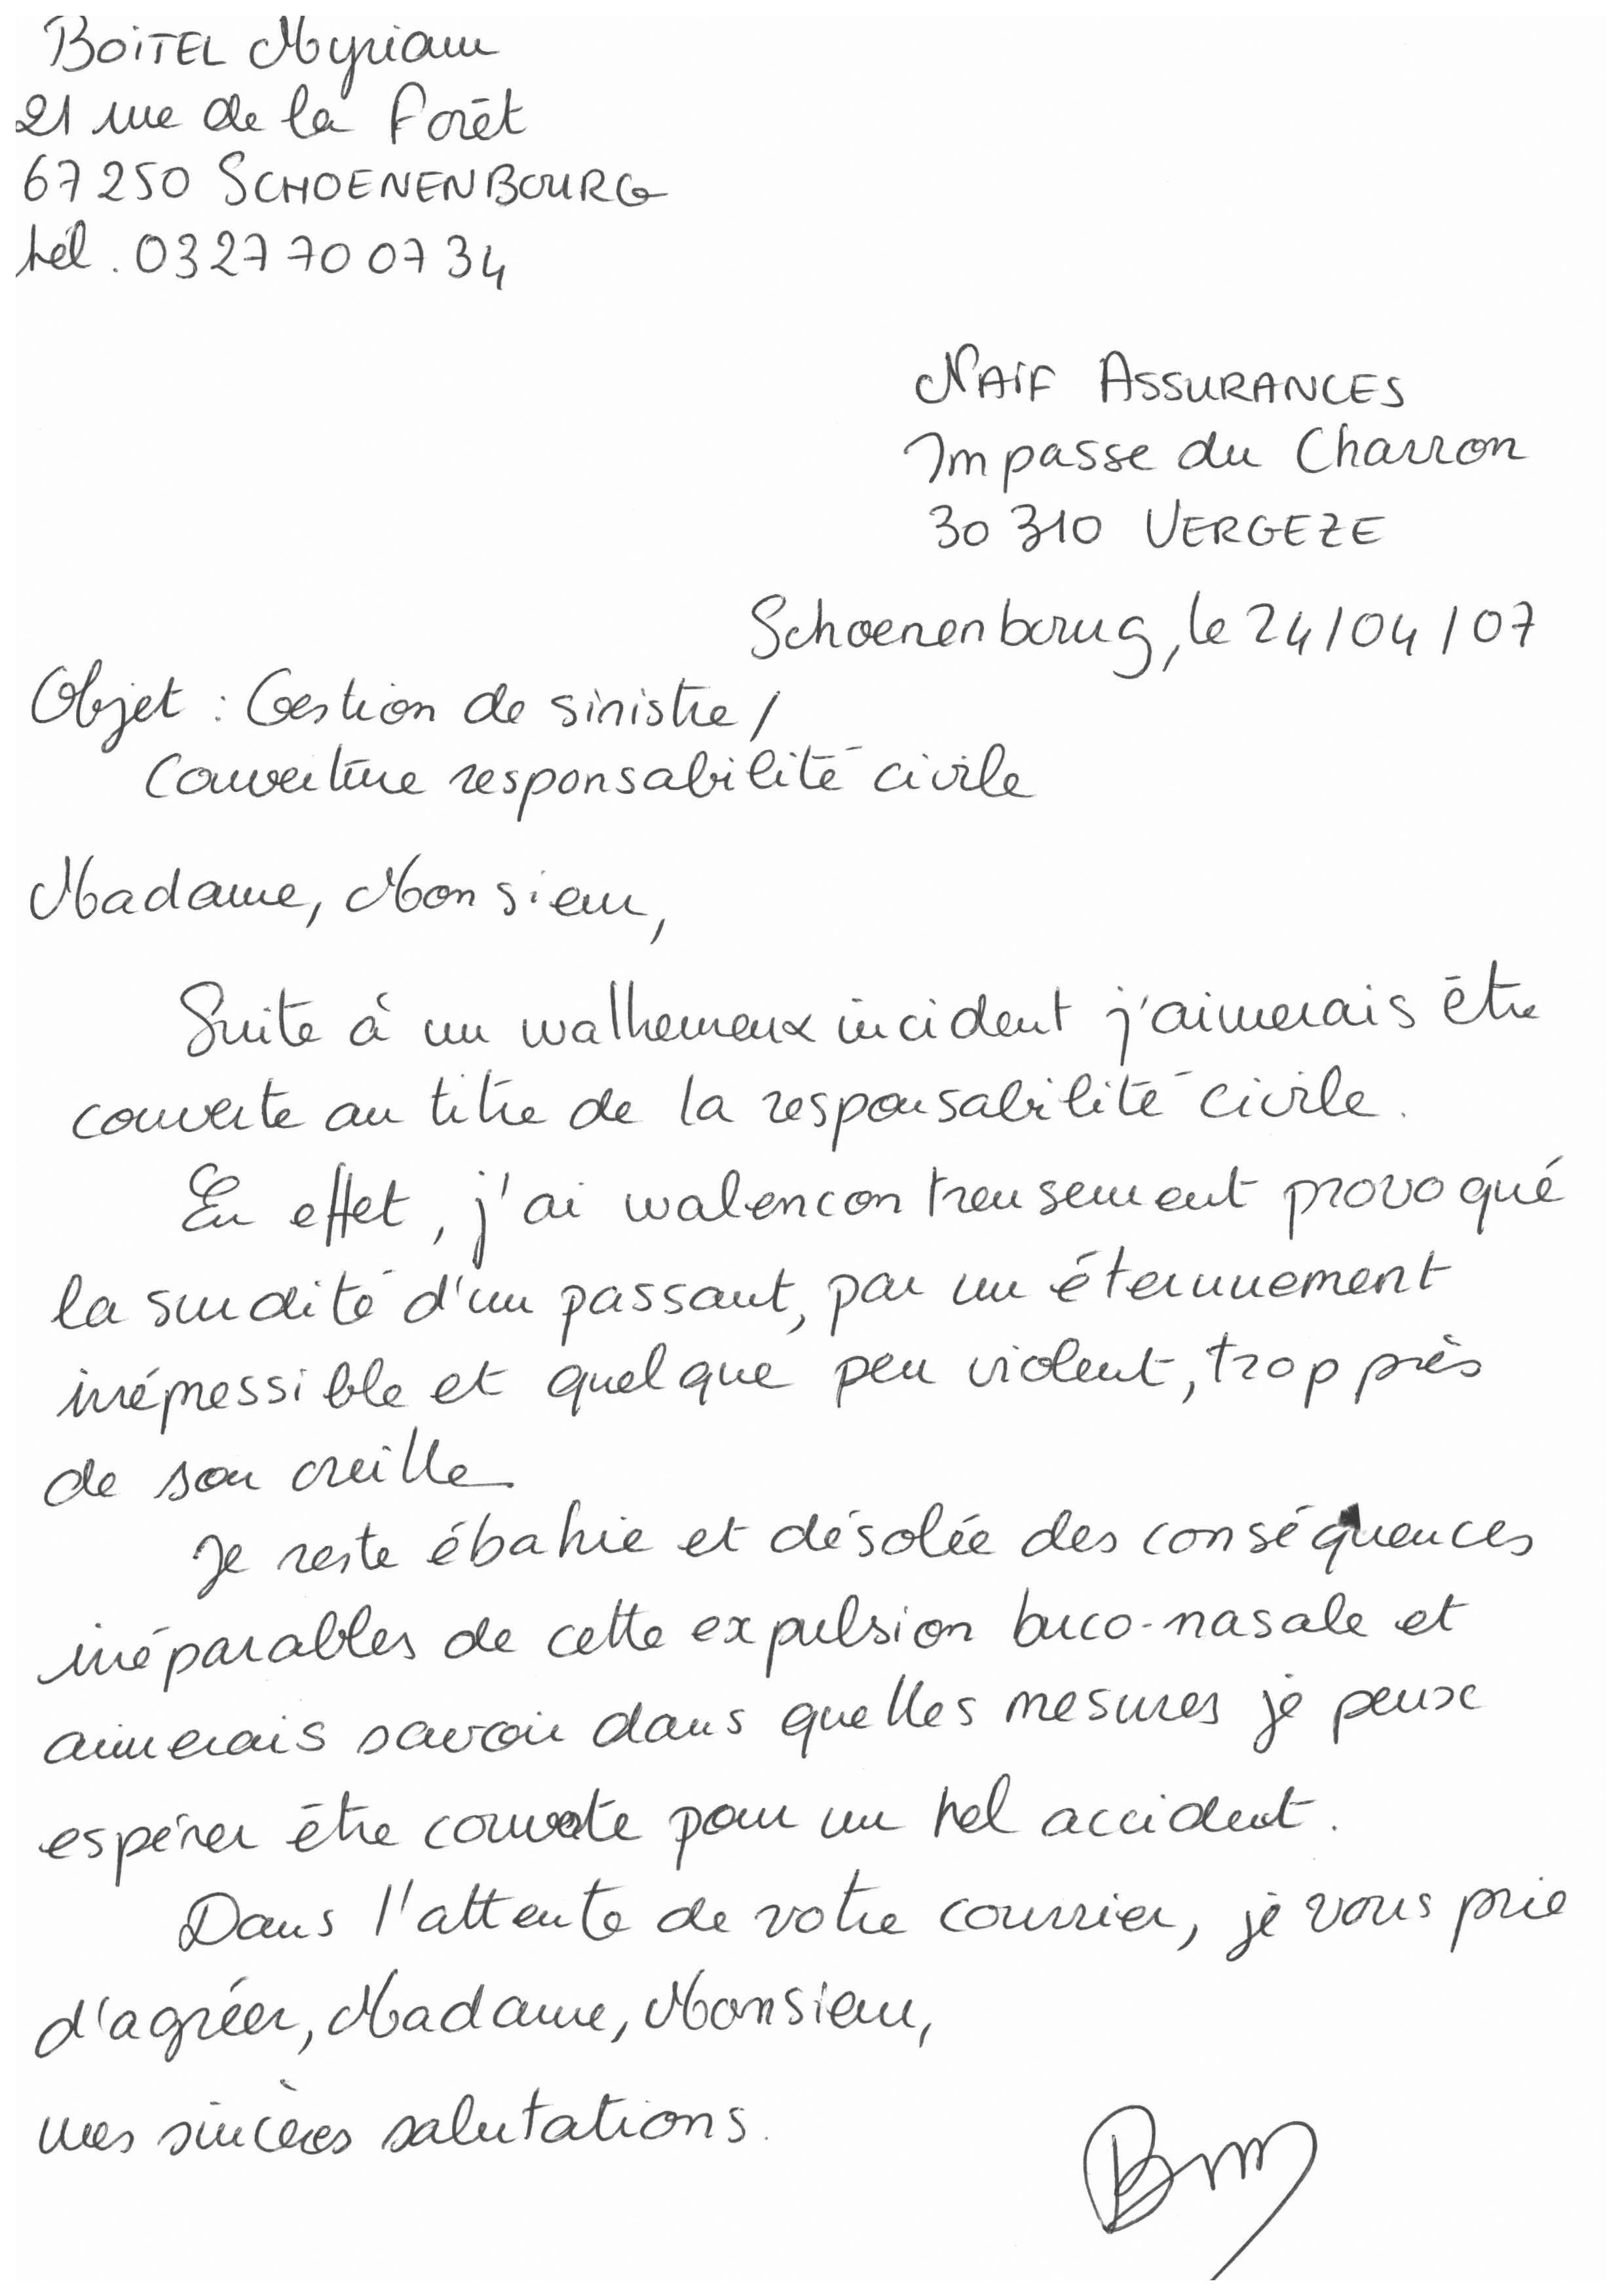 BOITEL Myriam
21 rue de la Forêt
67250 SCHOENENBOURG
tél. 03 27 70 07 34
NAIF ASSURANCES
Impasse du Charron
30 310 VERGEZE
Schoenenbourg, le 24/04/07
Objet : Gestion de sinistre /
Couverture responsabilité civile
Madame, Monsieur,
Suite à un malheureux incident j'aimerais être
couverte au titre de la responsabilité civile.
En effet, j'ai malencontreusement provoqué
la surdité d'un passant, par un éternuement
irrépressible et quelque peu violent, trop près
de son oreille
Je reste ébahie et désolée des conséquences
irréparables de cette expulsion buco-nasale et
aimerais savoir dans quelles mesures je peux
espérer être couverte pour un tel accident.
Dans l'attente de votre courrier, je vous prie
d'agréer, Madame, Monsieur,
mes sincères salutations.
BM